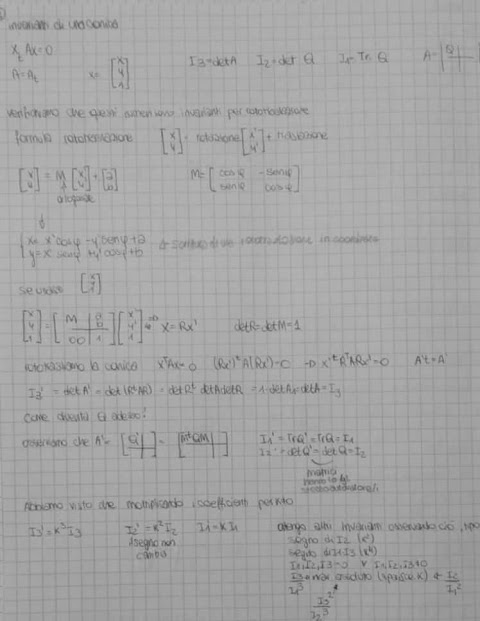 invarianti di una conica
xᵗAx=0
A=Aₜ x= [x y 1] I3=detA I2=det Q I1=Tr Q A=[Q]
verifichiamo che questi numeri sono invarianti per rototraslazione
formula rototraslazione [x y] = rotazione [x' y'] + traslazione
[x y] = M [x' y'] + [a b] M= [cosφ -senφ senφ cosφ]
{x= x'cosφ -y'senφ+a
y=x'senφ +y'cosφ+b scrittura di una rototraslazione in coordinate
se uso [x y 1]
[x y 1] = [M a b 00 1] [x' y' 1] => X=RX' detR=detM=1
rototrasliamo la conica xᵀAx=0 (Rx')ᵗA(Rx')=0 -> x'ᵗRᵀARx'=0 A't=A'
I3' = detA' = det(RᵗAR) = detRᵗ detA detR = 1·detA·1=detA=I3
come diventa Q adesso?
osserviamo che A'= [Q'] = [MᵗQM] I1'=TrQ'=TrQ=I1
I2'=detQ'=detQ=I2
matrici
hanno
stessi autovalori
Abbiamo visto che moltiplicando i coefficienti per k≠0
I3'=k³I3 I2'=k²I2 I1=kI1
il segno non
cambia
ottengo altri invarianti osservando ciò, tipo
segno di I2 (k²)
segno di I1I3 (k⁴)
I3/I1³ = inv assoluto (sparisce k) e I2/I1²
I3²/I2³